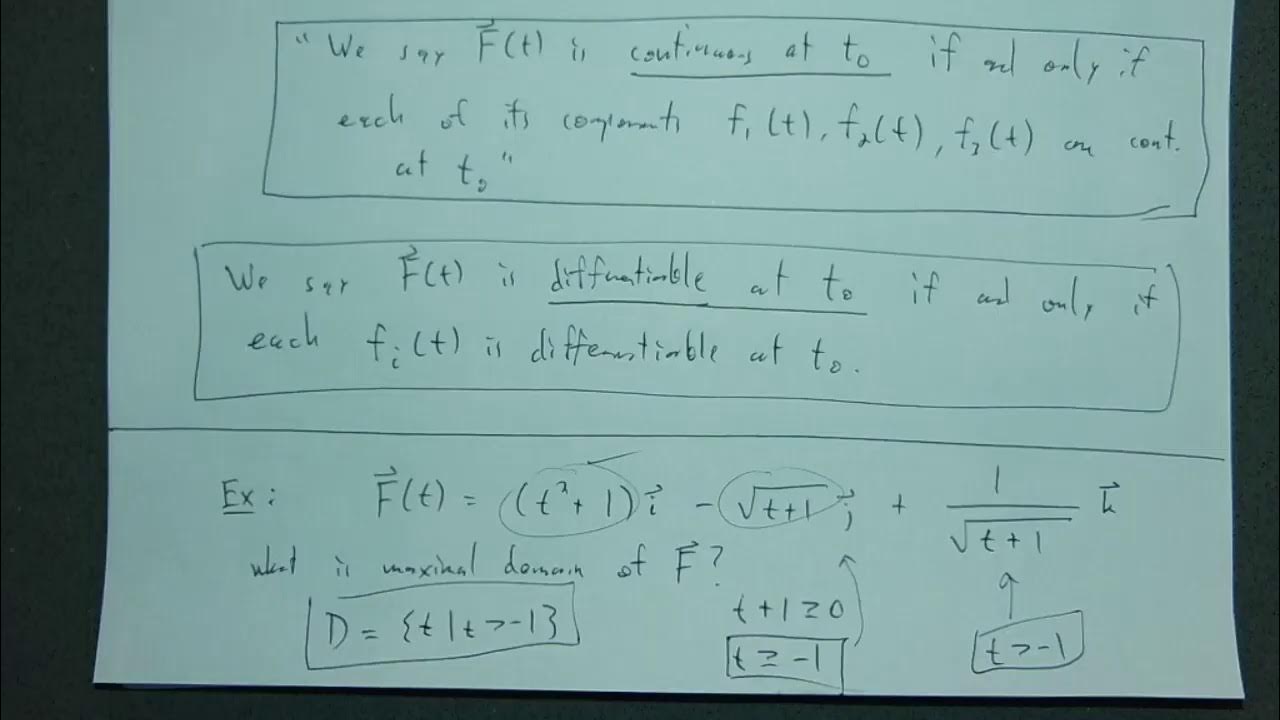 "We say F⃗(t) is continuous at t₀ if and only if
each of its components f₁(t), f₂(t), f₃(t) are cont.
at t₀"
We say F⃗(t) is differentiable at t₀ if and only if
each fᵢ(t) is differentiable at t₀.
Ex: F⃗(t) = (t² + 1) i⃗ - √(t+1) j⃗ + 1/√(t+1) k⃗
what is maximal domain of F⃗?
D = {t | t > -1}
t + 1 ≥ 0
t ≥ -1
t > -1